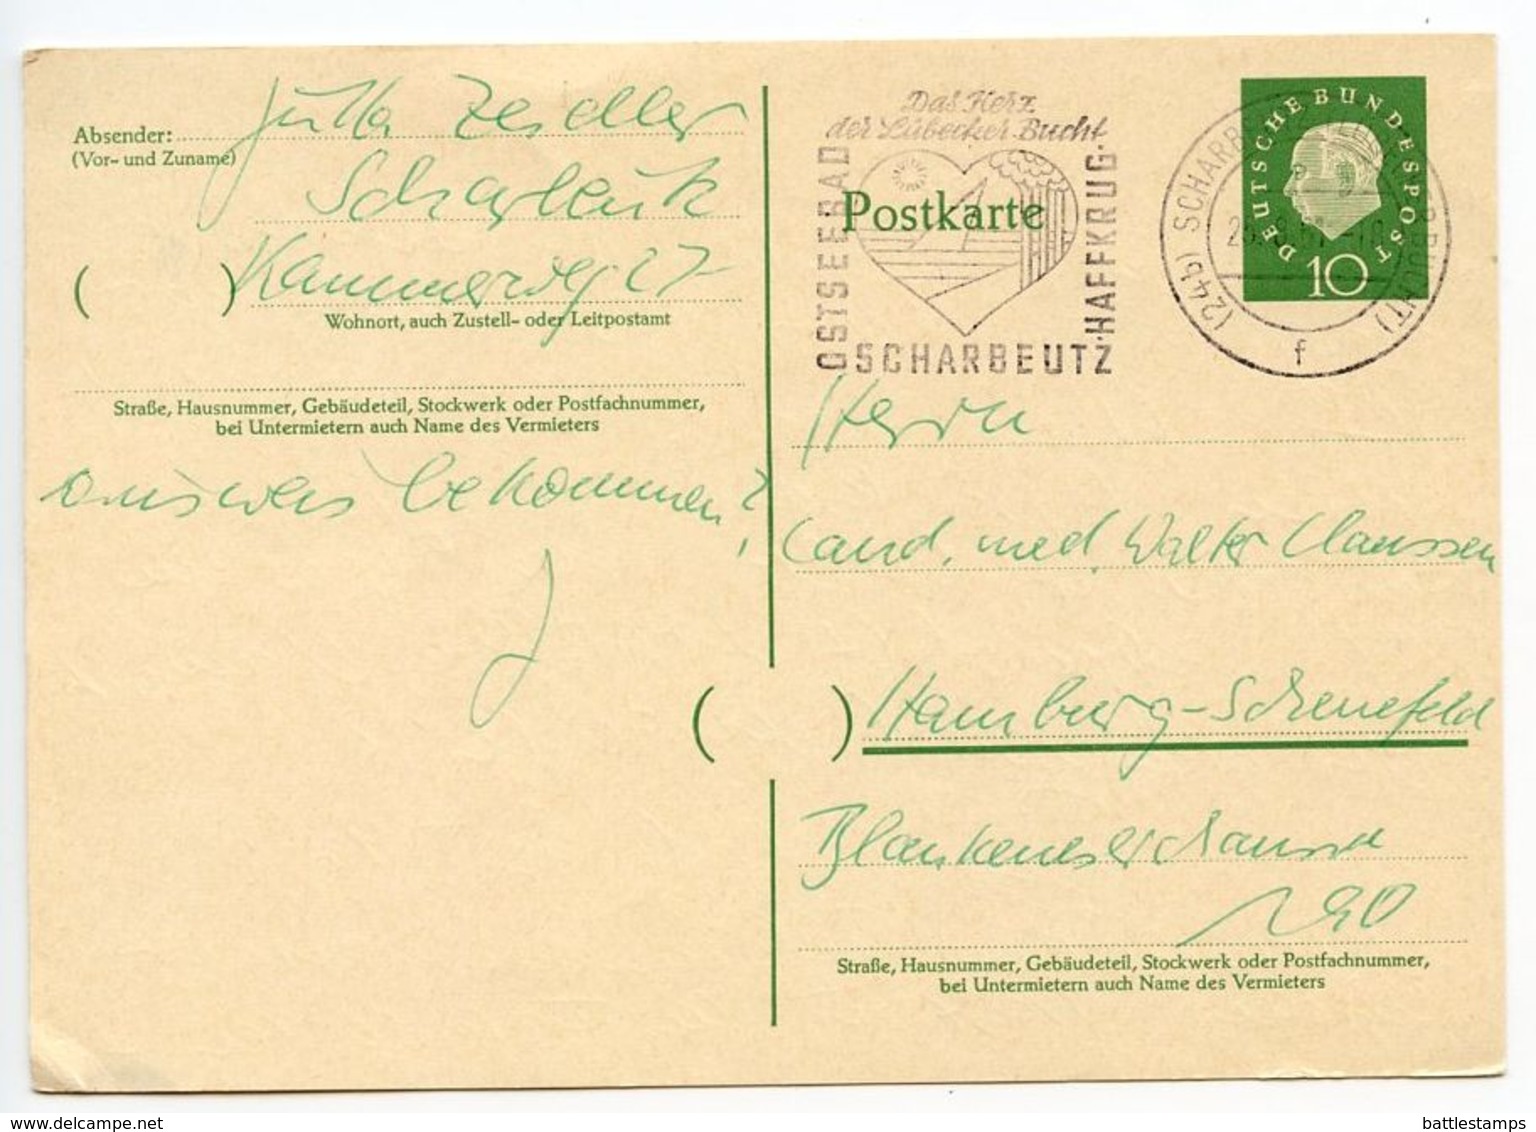 Absender:
Jutta Zeidler
(Vor- und Zuname)
Scharbeutz
( ) Kammerweg 27
Wohnort, auch Zustell- oder Leitpostamt
Straße, Hausnummer, Gebäudeteil, Stockwerk oder Postfachnummer,
bei Untermietern auch Name des Vermieters
ausweis bekommen?
J
Das Herz
der Lübecker Bucht
OSTSEEBAD
SCHARBEUTZ
·HAFFKRUG·
Postkarte
DEUTSCHE BUNDESPOST
10
(24b) SCHARB
BUCHT)
f
Herrn
Cand. med. Walter Claussen
( ) Hamburg-Schenefeld
Blankeneser Chaussee
190
Straße, Hausnummer, Gebäudeteil, Stockwerk oder Postfachnummer,
bei Untermietern auch Name des Vermieters
www.delcampe.net
battlestamps